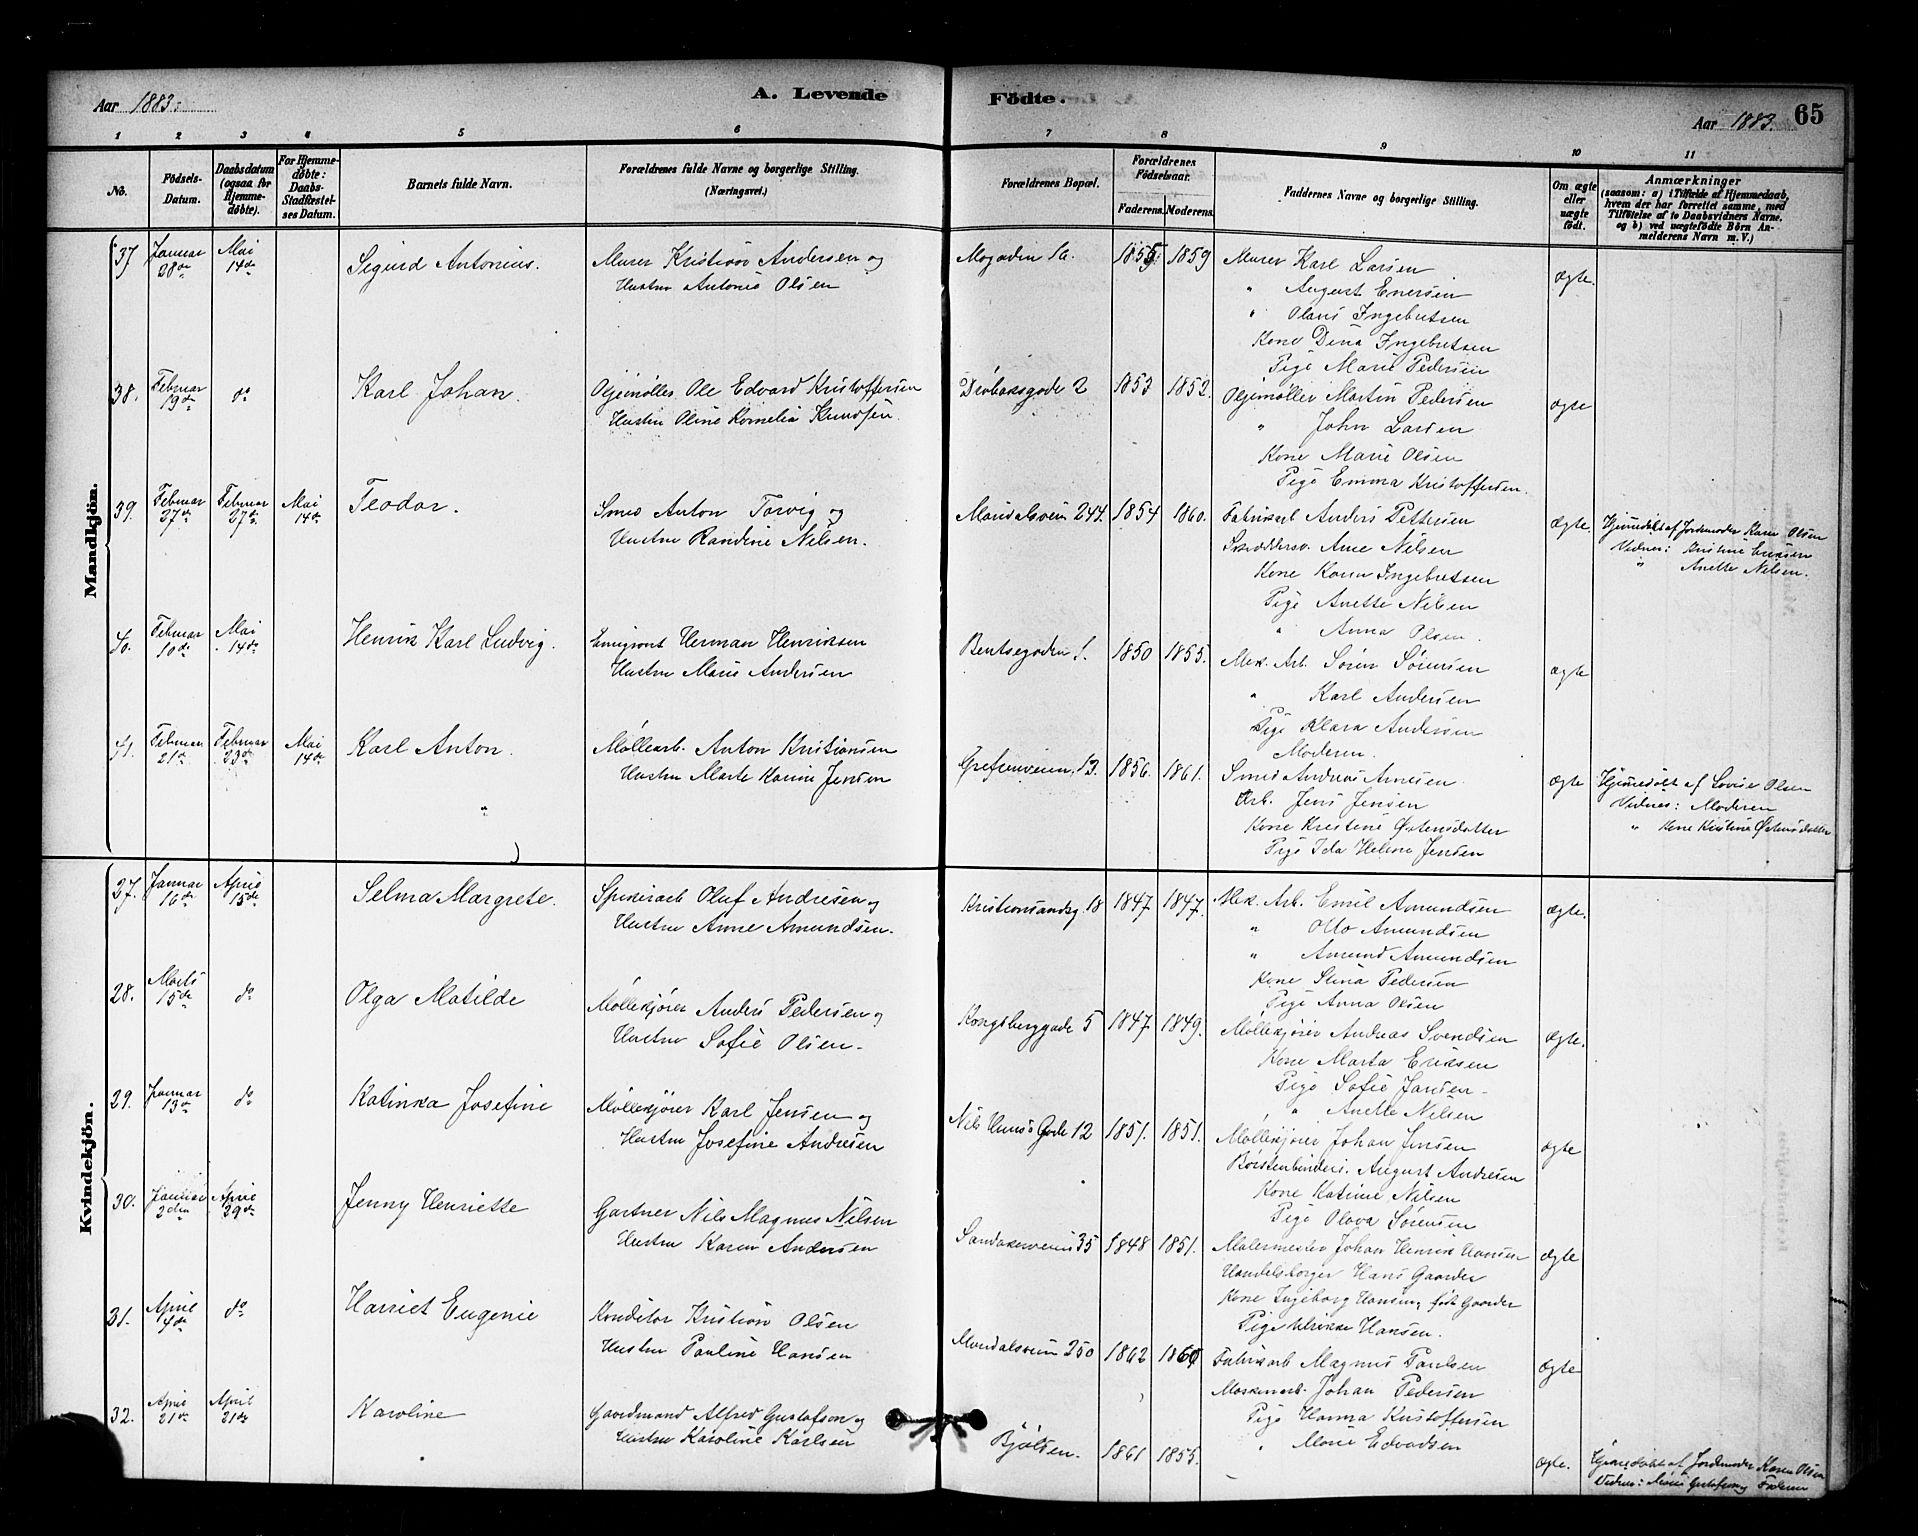 Aar 1883.
A. Levende Födte.
Aar 1883. 65
1 2 3 4 5 6 7 8 9 10 11
No.
Födsels-Datum.
Daabsdatum (ogsaa for Hjemmedøbte).
For Hjemmedøbte: Daabs-Stadfæstelses Datum.
Barnets fulde Navn.
Forældrenes fulde Navne og borgerlige Stilling. (Næringsvei.)
Forældrenes Bopæl.
Forældrenes Fødselsaar.
Faderens. Moderens.
Faddernes Navne og borgerlige Stilling.
Om ægte eller uægte født.
Anmærkninger
(saasom: a) i Tilfælde af Hjemmedaab, hvem der har forrettet samme, med Tilføielse af to Daabsvidners Navne. og b) ved uægtefødte Børn Anmelderens Navn m. V.)
Mandkjön.
37. Januar 28de Mai 14de Sigurd Antonius. Murer Kristian Andersen og Mogaden 1859 Murer Karl Larsen Ægte.
Hustru Antonie Olsen
" August Enersen
" Olaus Ingebretsen
Kone Dina Ingebretsen
Pige Marie Pedersen
38. Februar 19de do Karl Johan. Oljemøller Ole Edvard Kristoffersen Drøbaksgade 2 1853 1852. Oljemøller Martin Pedersen Ægte
Hustru Oline Kornelia Knudsen.
" John Larsen
Kone Marie Olsen
Pige Emma Kristoffersen.
39. Februar 27de Februar 27de Mai 14de Teodor. Smed Anton Torvig og Maridalsveien 244. 1854 1860. Fabrikarb Anders Pettersen Ægte. Hjemmedøbt af Jordemoder Karen Olsen
Hustru Randine Nilsen.
Skrædders. Arne Nilsen Vidner: Kristine Eriksen
Kone Karen Ingebretsen " Anette Nilsen.
Pige Anette Nilsen
" Anna Olsen.
40. Februar 10de Mai 14de Henrik Karl Ludvig. Emigrant Herman Henriksen Bentsegaden 1850 1855. Mek. Arb. Søren Sørensen Ægte
Hustru Marie Andersen
" Karl Andersen
Pige Klara Andersen
Moderen.
41. Februar 21de Februar 23de Mai 14de Karl Anton. Møllearb. Anton Kristiansen Grefsenveien 13. 1856. 1861. Smed Andreas Arnesen Ægte Hjemmedøbt af Lovise Olsen
Hustru Marte Karine Jensen
Arb. Jens Jensen Vidner: Moderen
Kone Kristine Østensdatter " Kone Kristine Østensdatter
Pige Ida Helene Jensen
Kvindekjön.
27. Januar 16de April 15de Selma Margrete. Spigerarb Oluf Andresen og Kristiansandsg. 18 1847 1847. Mek. Arb. Emil Amundsen Ægte.
Hustru Anne Amundsen.
" Otto Amundsen
" Amund Amundsen
Kone Stina Pedersen
Pige Anna Olsen
28. Marts 15de do Olga Matilde Møllekjører Anders Pedersen og Kongsberggade 5 1847 1849. Møllekjører Andreas Svendsen Ægte.
Hustru Sofie Olsen.
Kone Marta Eriksen
Pige Sofie Jansen
" Anette Nilsen
29. Januar 13de do Katinka Josefine Møllekjører Karl Jensen og Nils Huus's Gade 12 1851. 1851. Møllekjører Johan Jensen Ægte
Hustru Josefine Andresen
Børstenbinders. August Andresen
Kone Katrine Nilsen
Pige Olava Sørensen
30. Januar 2den April 29de Jenny Henriette Gartner Nils Magnus Nilsen Sandakerveien 35 1848 1851. Malermester Johan Henrik Hansen Ægte
Hustru Karen Andersen
Handelsborger Hans Gaarder
Kone Ingeborg Hansen, født Gaarder
Pige Ulrikke Hansen.
31. April 4de do Harriet Eugenie Konditor Kristian Olsen Maridalsveien 250 1862 1860 Fabrikarb Magnus Paulsen Ægte
Hustru Pauline Hansen
Maskinarb. Johan Pedersen
Pige Hanna Kristoffersen
" Marie Edvardsen
32. April 21de April 21de Karoline Gaardmand Alfred Gustafson og Bjølsen. 1861 1855. Ægte. Hjemmedøbt af Jordemoder Karen Olsen
Hustru Karoline Karlsen
Vidner: Marie Gustafson og Faderen